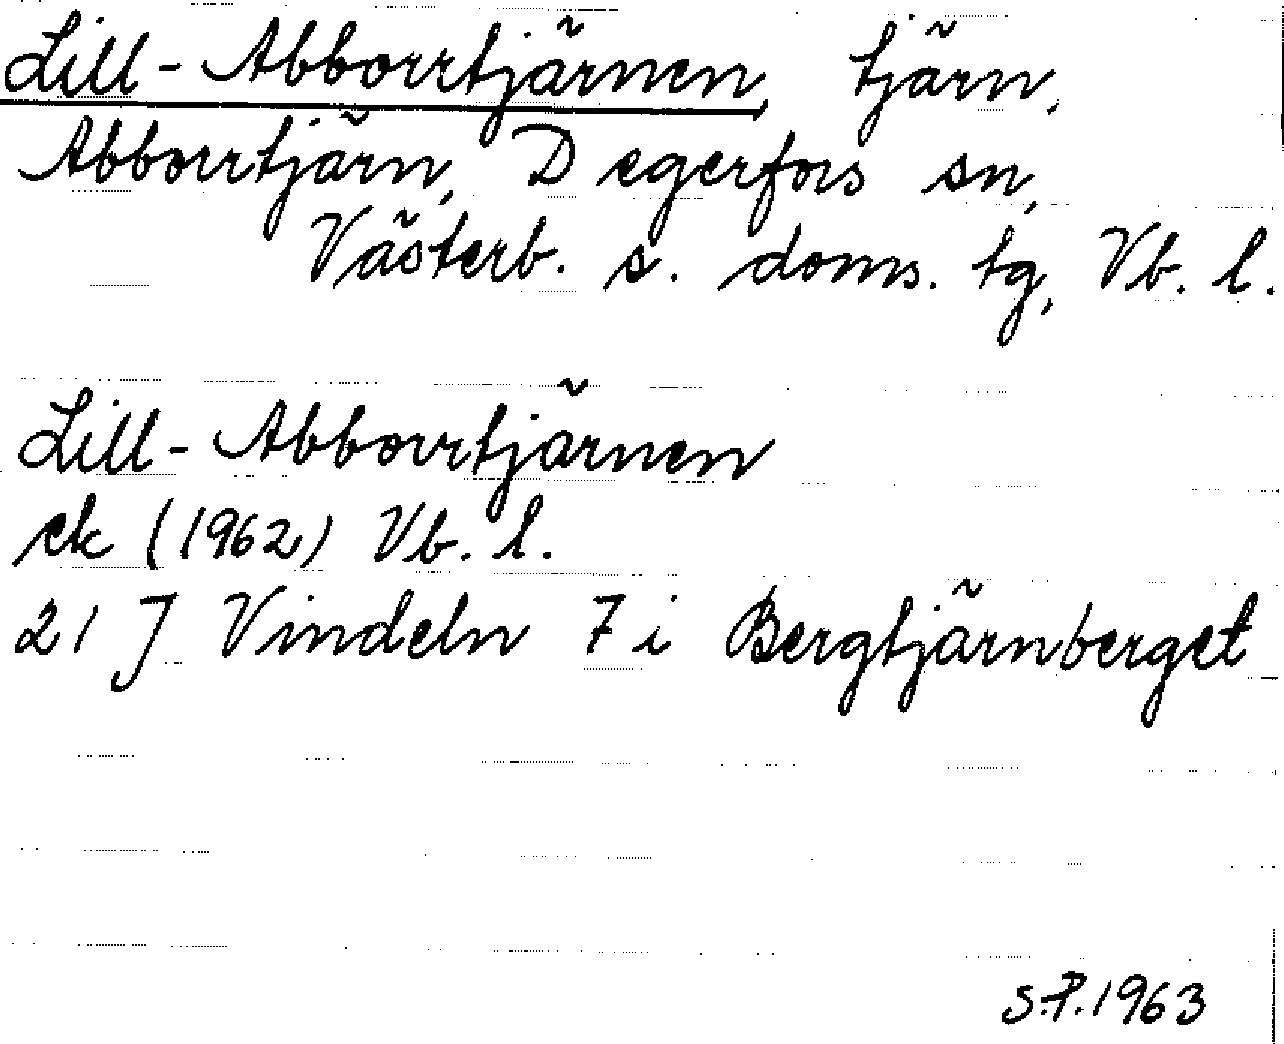 Lill-Abborrtjärnen, tjärn,
Abborrtjärn, Degerfors sn,
Västerb. s. doms. tg, Vb. l.
Lill-Abborrtjärnen
ek (1962) Vb. l.
21 J Vindeln 7 i Bergtjärnberget
S.P. 1963